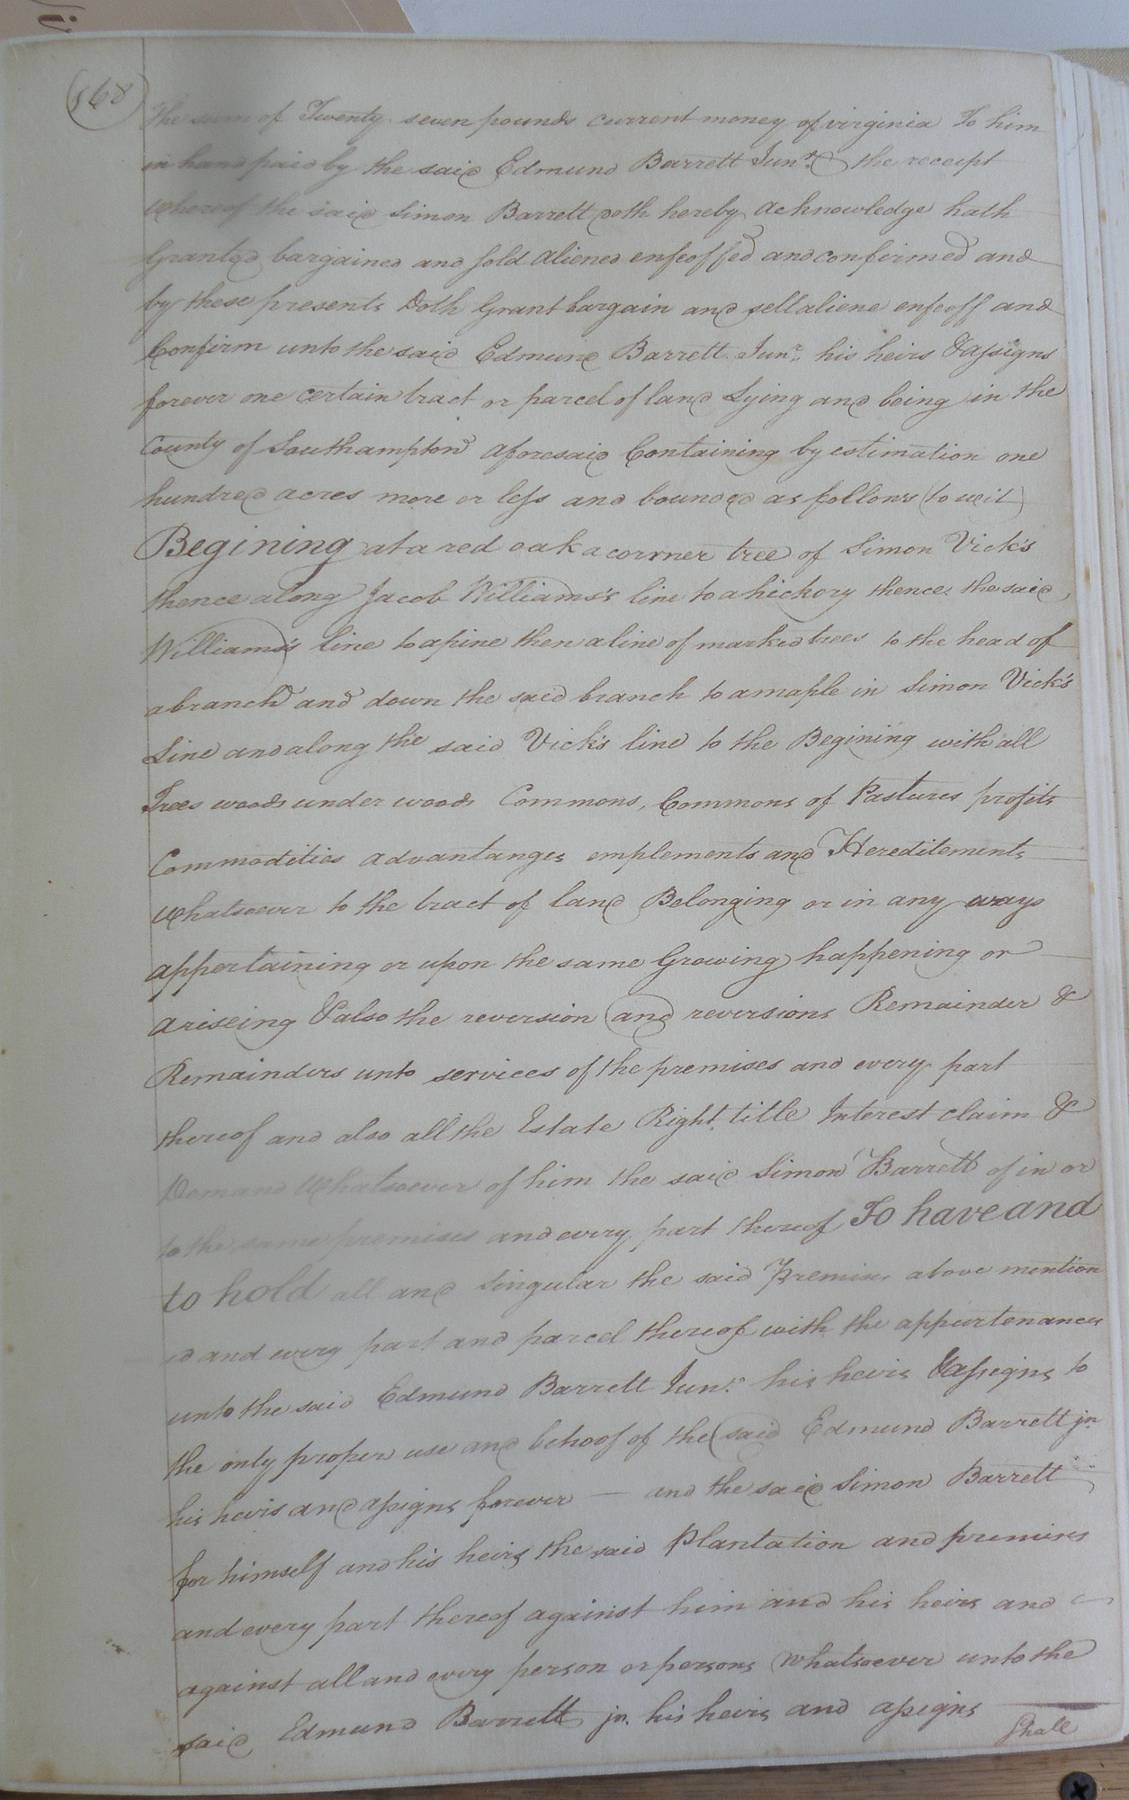 168
The sum of Twenty seven pounds current money of virginia To him
in hand paid by the said Edmund Barrett Junr. the receipt
Whereof the said Simon Barrett doth hereby acknowledge hath
Granted bargained and sold aliened enfeoffed and confirmed and
by these presents Doth Grant bargain and sell aliene enfeoff and
Confirm unto the said Edmund Barrett Junr. his heirs & assigns
forever one certain tract or parcel of land Lying and being in the
County of Southampton aforesaid Containing by estimation one
hundred acres more or less and bounded as follows (to wit)
Begining at a red oak a corner tree of Simon Vick's
thence along Jacob Williams's line to a hickory thence the said
Williams's line to a pine then a line of marked trees to the head of
a branch and down the said branch to a maple in Simon Vick's
Line and along the said Vick's line to the Begining with all
Trees woods under woods Commons, Commons of Pastures profits
Commodities advantanges emplements and Hereditements
Whatsoever to the tract of land Belonging or in any ways
appertaining or upon the same Growing happening or
ariseing & also the reversion and reversions Remainder &
Remainders unto services of the premises and every part
thereof and also all the Estate Right title Interest claim &
Demand Whatsoever of him the said Simon Barrett of in or
to the same premises and every part thereof To have and
to hold all and Singular the said Premises above mention
ed and every part and parcel thereof with the appurtenances
unto the said Edmund Barrett Junr. his heirs & assigns to
the only proper use and behoof of the said Edmund Barrett jr.
his heirs and assigns forever — and the said Simon Barrett
for himself and his heirs the said Plantation and premises
and every part thereof against him and his heirs and
against all and every person or persons Whatsoever unto the
said Edmund Barrett jr. his heirs and assigns
Shall